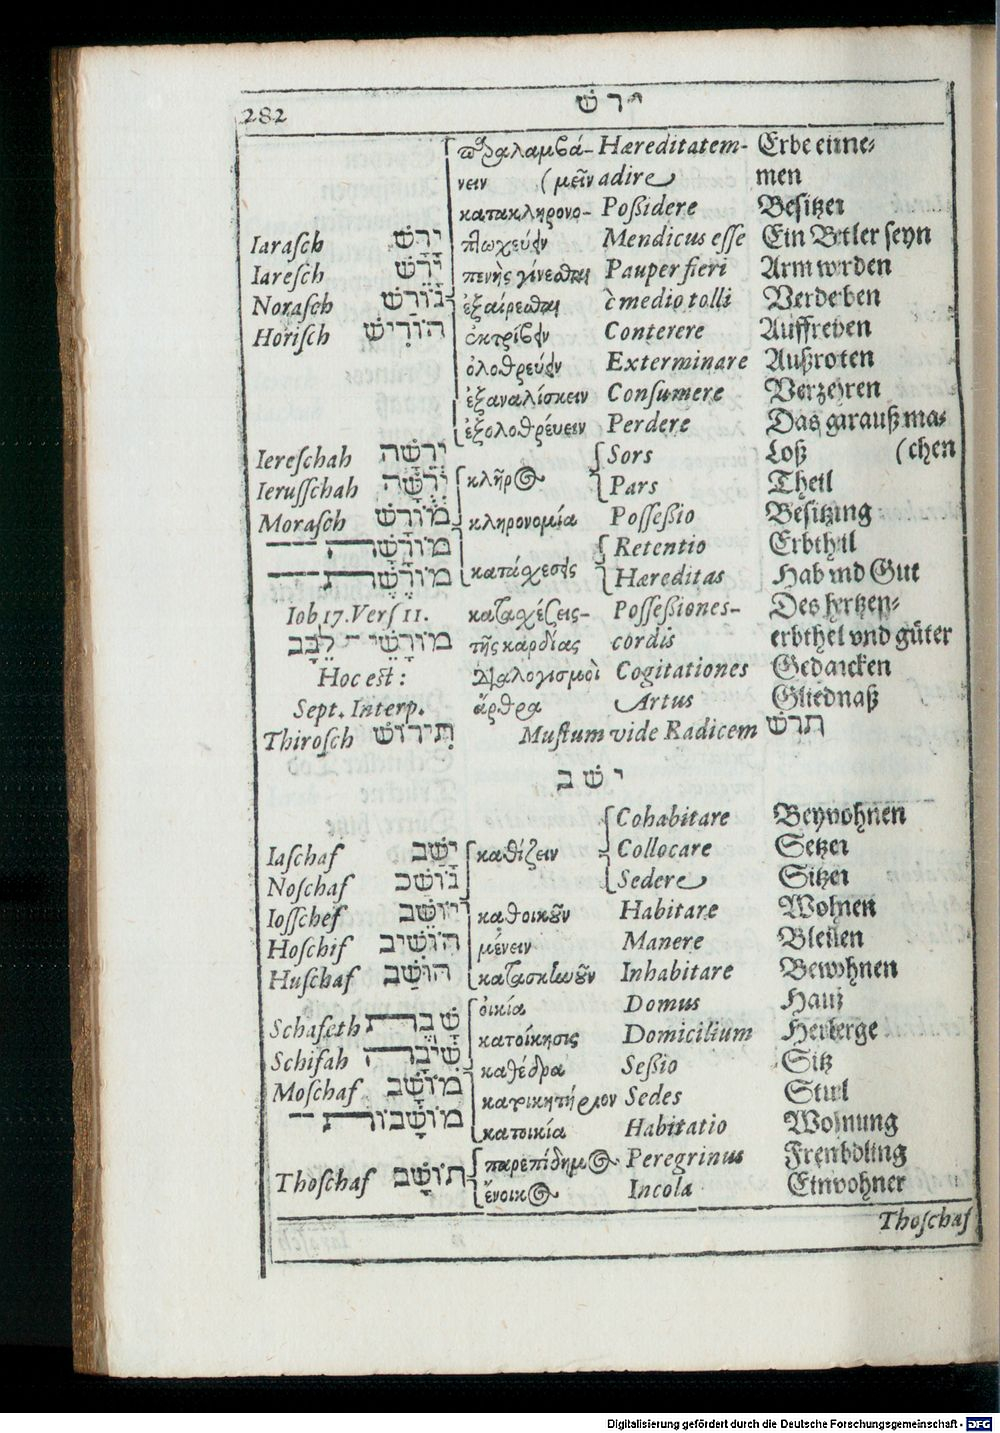 282 ירש
παραλαμβά- Hæreditatem- Erbe einne-
νειν (μεῖν adire men
κατακληρονο- Poßidere Besitzen
Iaraſch יָרַשׁ πτωχεύειν Mendicus eſſe Ein Betler seyn
Iareſch יָרֵשׁ πενὴς γίνεσθαι Pauper fieri Arm werden
Noraſch נוֹרַשׁ ἐξαίρεσθαι è medio tolli Verderben
Horiſch הוֹרִישׁ ἐκτρίβειν Conterere Auffreiben
ὀλοθρεύειν Exterminare Außroten
ἐξαναλίσκειν Conſumere Verzehren
ἐξολοθρέυειν Perdere Das garauß ma-
Iereſchah יְרֵשָׁה Sors Loß (chen
Ieruſſchah יְרֻשָּׁה κλῆρος Pars Theil
Moraſch מוֹרָשׁ κληρονομία Poſſeßio Besitzung
מוֹרָשָׁה Retentio Erbtheil
מוֹרֶשֶׁת κατάχεσις Hæreditas Hab vnd Gut
Iob 17. Verſ 11. καταχέζεις- Poſſeßiones- Des hertzen-
מוֹרָשֵׁי לֵבָב τῆς καρδίας cordis erbtheil vnd güter
Hoc eſt: διαλογισμοὶ Cogitationes Gedancken
Sept. Interp. ἄρθρα Artus Gliednaß
Thiroſch תִירוֹשׁ Muſtum vide Radicem תרש
ישב
Cohabitare Beywohnen
Iaſchaf יָשַׁב καθίζειν Collocare Setzen
Noſchaf נוֹשַׁב Sedere Sitzen
Ioſſchef יוֹשֵׁב καθοικοῦν Habitare Wohnen
Hoſchif הוֹשִׁיב μένειν Manere Bleiben
Huſchaf הוּשַׁב κατασκηνοῦν Inhabitare Bewohnen
οἰκία Domus Hauß
Schafeth שֶׁבֶת κατοίκησις Domicilium Herberge
Schifah שִׁיבָה καθέδρα Seßio Sitz
Moſchaf מוֹשָׁב κατοικητήριον Sedes Stuel
מוֹשָׁבוֹת κατοικία Habitatio Wohnung
παρεπίδημος Peregrinus Frembdling
Thoſchaf תוֹשָׁב ἔνοικος Incola Einwohner
Thoſchaf
Digitalisierung gefördert durch die Deutsche Forschungsgemeinschaft - DFG